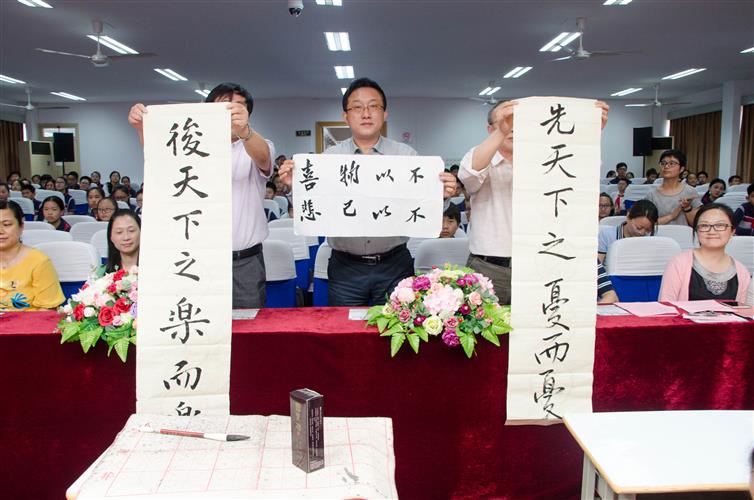 先天下之憂而憂
不以物喜
不以己悲
後天下之樂而樂